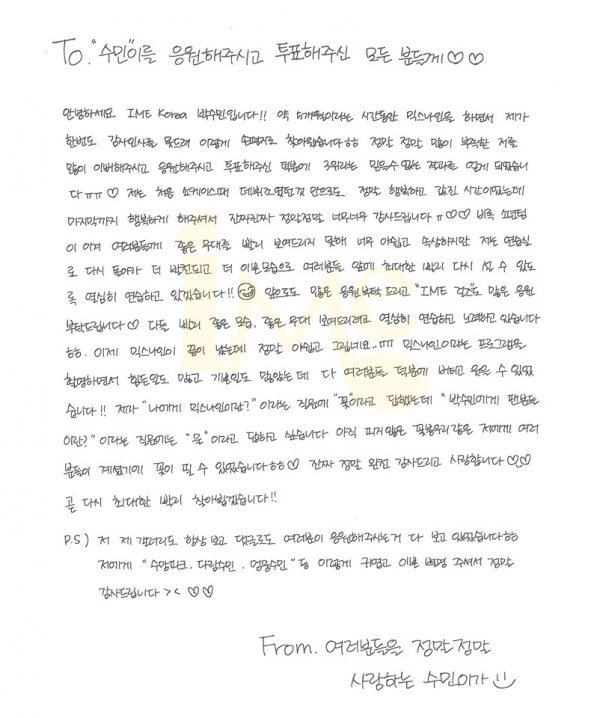 To. "수민"이를 응원해주시고 투표해주신 모든 분들께♡♡
안녕하세요 IME Korea 박수민입니다!! 약 5개월이라는 시간동안 믹스나인을 하면서 제가
한번도 감사인사를 못드려 이렇게 손편지로 찾아왔습니다ㅎㅎ 정말 정말 많이 부족한 저를
많이 이뻐해주시고 응원해주시고 투표해주신 덕분에 3위라는 믿을수 없는 결과를 얻게 되었습니
다ㅠㅠ♡ 저는 처음 쇼케이스때 데뷔조였던것 만으로도 정말 행복하고 값진 시간이었는데
마지막까지 행복하게 해주셔서 진짜진짜 정말정말 너무너무 감사드립니다 ㅠ♡♡ 비록 소년팀
이 이겨 여러분들께 좋은 무대를 빨리 보여드리지 못해 너무 아쉽고 속상하지만 저는 연습실
로 다시 돌아가 더 발전되고 더 이쁜모습으로 여러분들 앞에 최대한 빨리 다시 설 수 있도
록 열심히 연습하고 있겠습니다!! 앞으로도 많은 응원부탁드리고 "IME 걸즈"도 많은 응원
부탁드립니다♡ 다들 빨리 좋은 모습, 좋은 무대 보여드리려고 열심히 연습하고 노력하고 있습니다
ㅎㅎ. 이제 믹스나인이 끝이 났는데 정말 아쉽고 그립네요..ㅠㅠ 믹스나인이라는 프로그램을
촬영하면서 힘든일도 많고 기쁜일도 많았는데 다 여러분들 덕분에 버티고 웃을 수 있었
습니다!! 제가 "나에게 믹스나인이란?" 이라는 질문에 "꽃"이라고 답했는데 "박수민에게 팬분들
이란?" 이라는 질문에는 "물"이라고 답하고 싶습니다 아직 피지않은 꽃봉우리같은 저에게 여러
분들이 계셨기에 꽃이 필 수 있었습니다ㅎㅎ♡ 진짜 정말 완전 감사드리고 사랑합니다♡♡
곧 다시 최대한 빨리 찾아뵙겠습니다!!
P.S) 저 제 갤러리도 항상 보고 댓글로도 여러분이 응원해주시는거 다 보고 있었습니다ㅎㅎ
저에게 "수망파크. 다람수민. 멍뭉수민" 등 이렇게 귀엽고 이쁜 별명 주셔서 정말
감사드립니다 >< ♡♡
From. 여러분들을 정말정말
사랑하는 수민이가